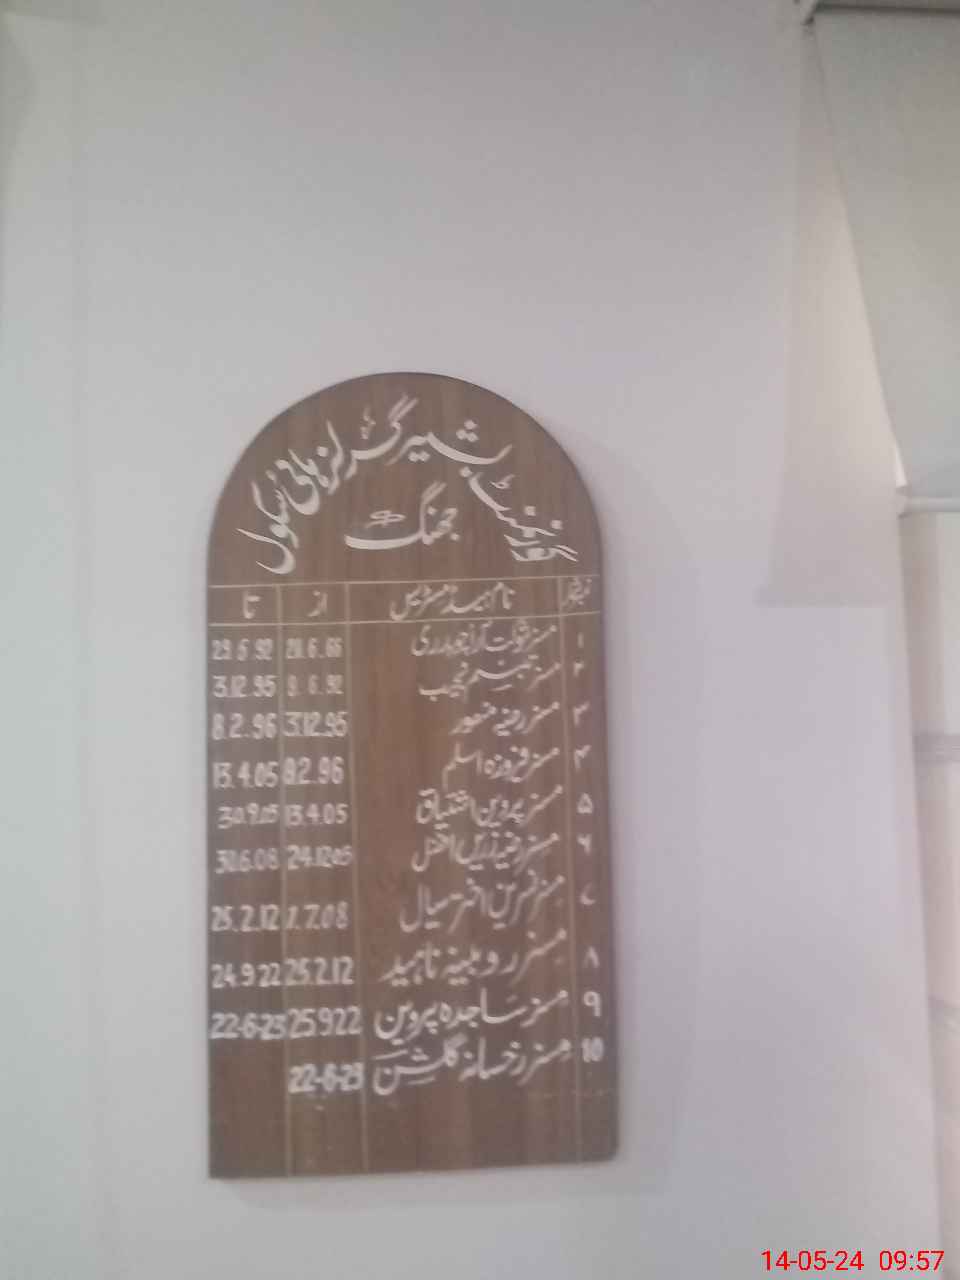 گورنمنٹ بشیر گرلز ہائی سکول
جھنگ
نمبر شمار نام ہیڈ مسٹریس از تا
۱ مسز شوکت آرا چوہدری
۲ مسز تبسم نجیب
۳ مسز رضیہ منصور 3.12.95 8.2.96
۴ مسز فروزہ اسلم 8.2.96 13.4.05
۵ مسز پروین اشتیاق 13.4.05 30.9.05
۶ مسز رضیہ زریں افضل 24.12.05 30.6.08
۷ مسز نسرین اختر سیال 1.7.08 25.2.12
۸ مسز روبینہ ناہید 25.2.12 24.9.22
9 مسز ساجدہ پروین 25.9.22 22-6-23
10 مسز رخسانہ گلشن 22-6-23
14-05-24 09:57